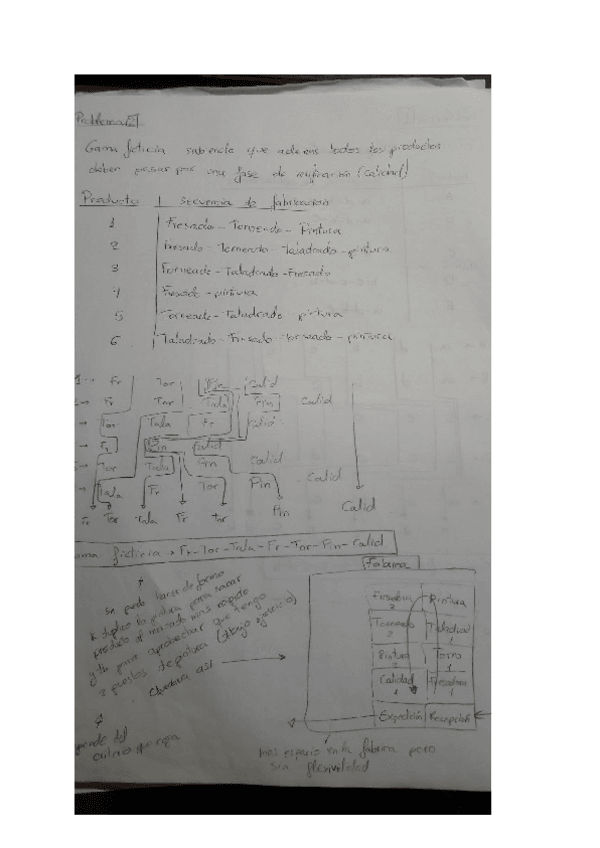 Problema 2
Gama ficticia sabiendo que ademas todos los productos
deben pasar por una fase de verificacion (calidad)
Producto | Secuencia de fabricacion
1 Fresado - Torneado - Pintura
2 Fresado - Torneado - Taladrado - pintura
3 Torneado - Taladrado - Fresado
4 Fresado - pintura
5 Torneado - Taladrado - pintura
6 Taladrado - Fresado - Torneado - pintura
1 → Fr Tor Pin Calid
→ Fr Tor Tala Pin Calid
→ Tor Tala Fr Calid
→ Fr Pin Calid
→ Tor Tala Pin Calid
→ Tala Fr Tor Pin Calid
Fr Tor Tala Fr Tor Pin Calid
ficticia → Fr - Tor - Tala - Fr - Tor - Pin - Calid
se puede hacer de forma
duplico la pintura para sacar
producto al mercado mas rapido
y tb para aprovechar que tengo
2 puestos de pintura (dibujo ejercicio)
Quedaria asi →
Fabrica
Fresadora 2 Pintura
Torneado 2 Taladrado 1
Pintura 2 Torno 1
Calidad 1 Fresadora 1
Expedición Recepción
mas espacio en la fabrica pero
sin flexividad